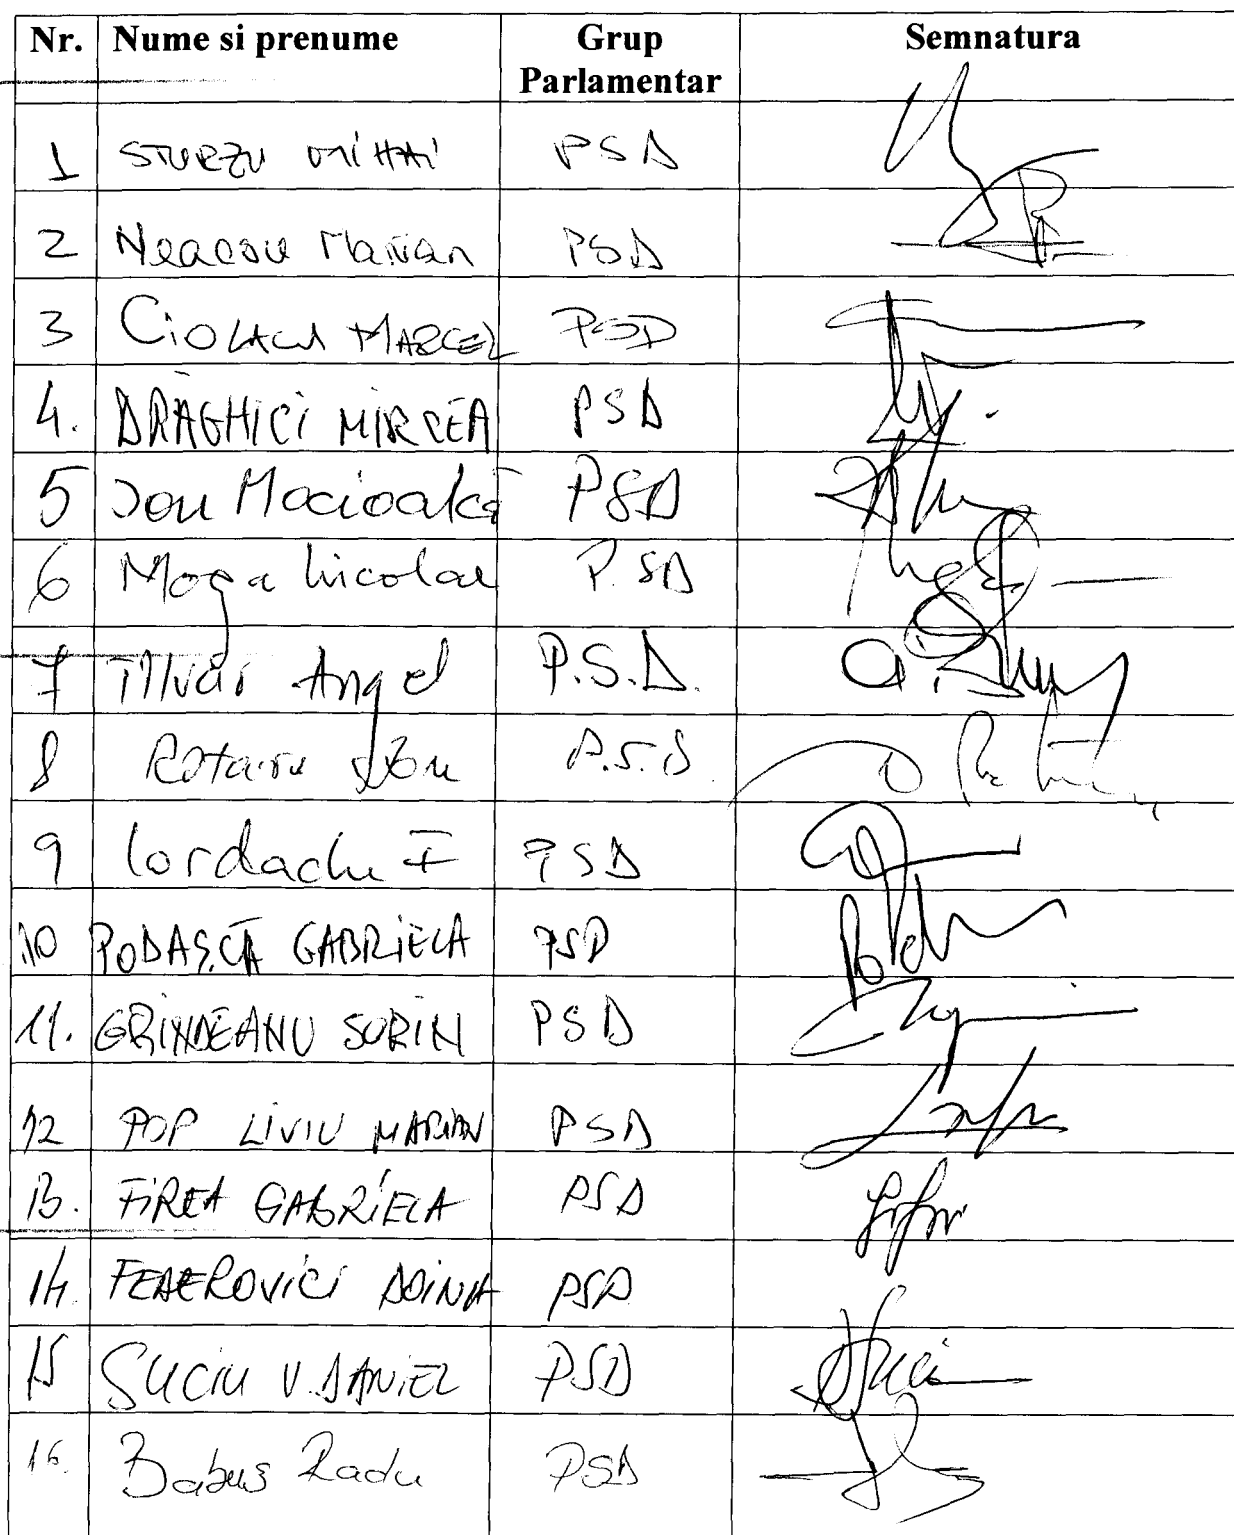 Nr. Nume si prenume Grup Parlamentar Semnatura
1 STURZU MIHAI PSD
2 Neacsu Marian PSD
3 CIOLACU MARCEL PSD
4. DRĂGHICI MIRCEA PSD
5 Ion Mocioalcă PSD
6 Moga Nicolae P.SD
7 Tîlvăr Angel P.S.D.
8 Rotaru Ion P.S.D
9 Iordache I PSD
10 PODAȘCĂ GABRIELA PSD
11. GRINDEANU SORIN PSD
12 POP LIVIU MARIAN PSD
13. FIREA GABRIELA PSD
14. FEDEROVICI DOINA PSD
15 SUCIU V. DANIEL PSD
16. Babuș Radu PSD